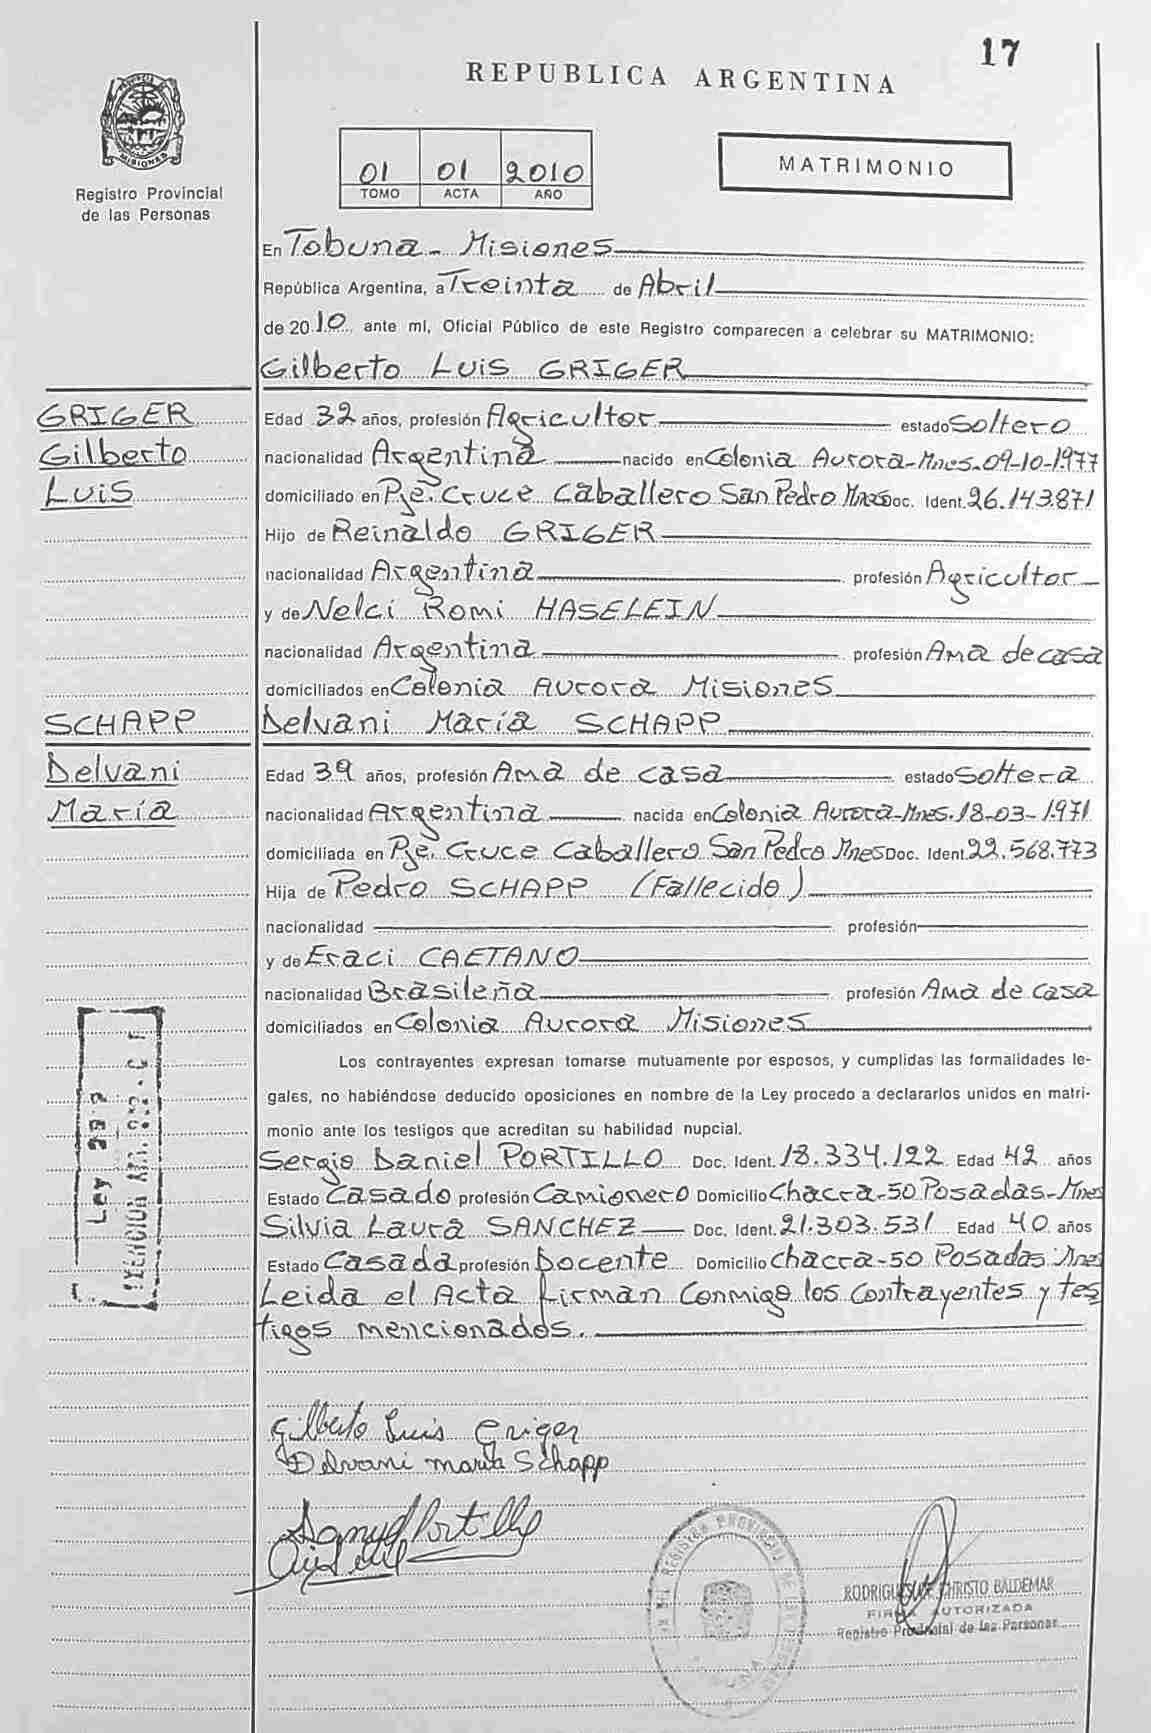 17
REPUBLICA ARGENTINA
MISIONES
Registro Provincial
de las Personas
01 01 2010
TOMO ACTA AÑO
MATRIMONIO
En Tobuna - Misiones
República Argentina, a Treinta de Abril
de 2010, ante mí, Oficial Público de este Registro comparecen a celebrar su MATRIMONIO:
Gilberto Luis GRIGER
GRIGER
Gilberto
Luis
Edad 32 años, profesión Agricultor estado Soltero
nacionalidad Argentina nacido en Colonia Aurora-Mnes. 09-10-1977
domiciliado en Pje. Cruce Caballero San Pedro Mnes Doc. Ident. 26.143.871
Hijo de Reinaldo GRIGER
nacionalidad Argentina profesión Agricultor
y de Nelci Romi HASELEIN
nacionalidad Argentina profesión Ama de casa
domiciliados en Colonia Aurora Misiones
SCHAPP
Delvani
María
Delvani María SCHAPP
Edad 39 años, profesión Ama de casa estado Soltera
nacionalidad Argentina nacida en Colonia Aurora-Mnes. 18-03-1971
domiciliada en Pje. Cruce Caballero San Pedro Mnes Doc. Ident. 22.568.773
Hija de Pedro SCHAPP (Fallecido)
nacionalidad profesión
y de Eraci CAETANO
nacionalidad Brasileña profesión Ama de casa
domiciliados en Colonia Aurora Misiones
Los contrayentes expresan tomarse mutuamente por esposos, y cumplidas las formalidades le-
gales, no habiéndose deducido oposiciones en nombre de la Ley procedo a declararlos unidos en matri-
monio ante los testigos que acreditan su habilidad nupcial.
Sergio Daniel PORTILLO Doc. Ident. 18.334.122 Edad 42 años
Estado Casado profesión Camionero Domicilio Chacra-50 Posadas-Mnes
Silvia Laura SANCHEZ Doc. Ident. 21.303.531 Edad 40 años
Estado Casada profesión Docente Domicilio Chacra-50 Posadas Mnes
Leida el Acta firman Conmigo los Contrayentes y tes
tigos mencionados.
Ley
Gilberto Luis Griger
Delvani maria Schapp
Portillo
REGISTRO PROVINCIAL DE LAS PERSONAS
CHRISTO BALDEMAR
FIRMA AUTORIZADA
Registro Provincial de las Personas